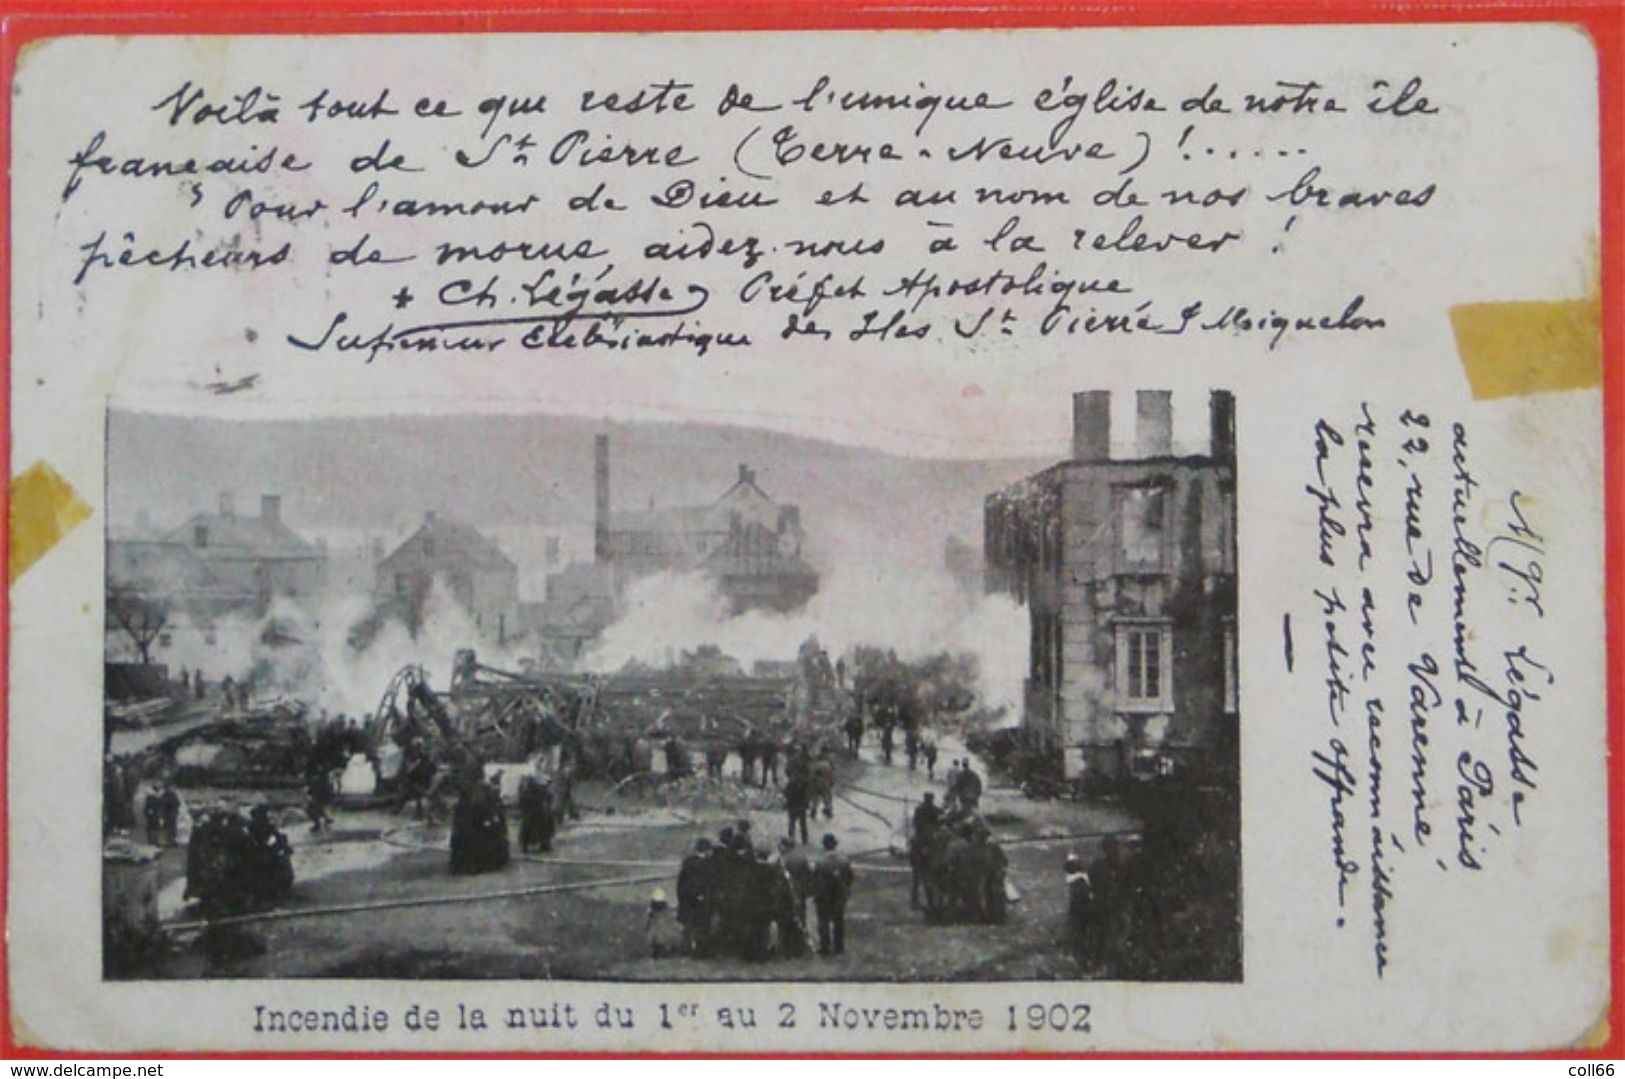 Voilà tout ce qui reste de l'unique église de notre île
française de St Pierre (Terre-Neuve) !......
Pour l'amour de Dieu et au nom de nos braves
pêcheurs de morue, aidez-nous à la relever !
+ Ch. Légasse Préfet Apostolique
Supérieur Ecclésiastique des Iles St Pierre & Miquelon
Mgr. Légasse
actuellement à Paris
22, rue de Varenne
recevra avec reconnaissance
la plus petite offrande.
Incendie de la nuit du 1er au 2 Novembre 1902
delcampe.net
coll66